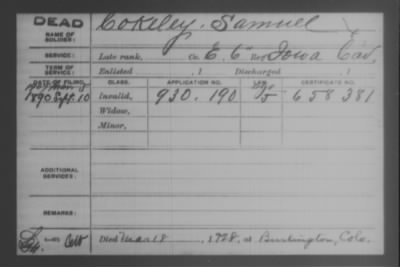 DEAD
NAME OF SOLDIER: Cokeley, Samuel
SERVICE: Late rank, Co. E, 6" Reg Iowa Cav.
TERM OF SERVICE: Enlisted , 1 Discharged , 1
DATE OF FILING. CLASS. APPLICATION NO. LAW. CERTIFICATE NO.
1890 Sept. 10 Invalid, 930.190 658 381
Widow,
Minor,
ADDITIONAL SERVICES:
REMARKS:
Died Mar 18, 1928, at Burlington, Colo.